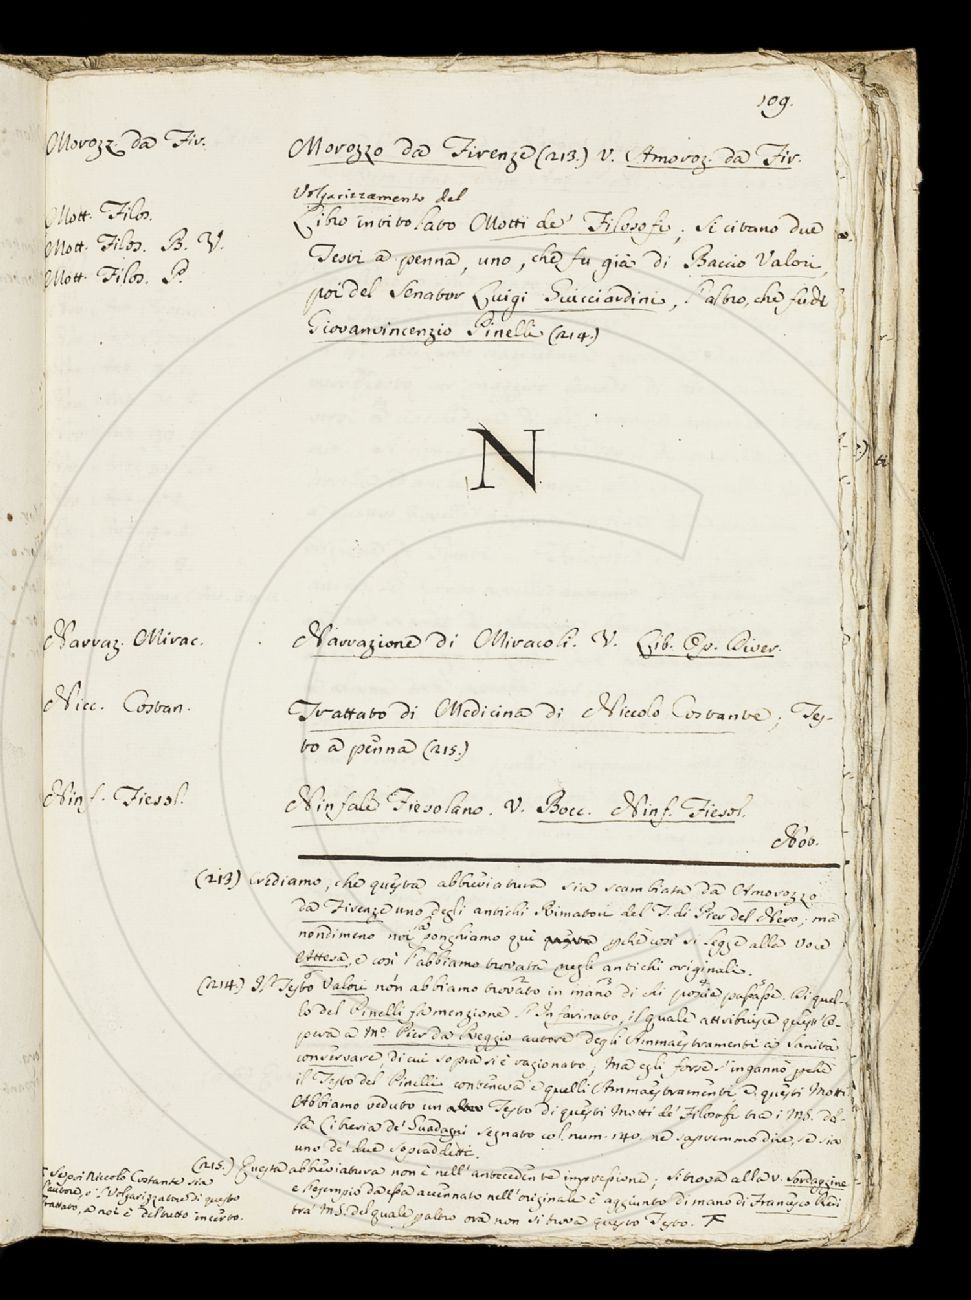 109.
Morozz. da Fir.
Morozzo da Firenze (213.) v. Amoroz. da Fir.
Volgarizzamento del
Mott. Filos.
Mott. Filos. B. V.
Mott. Filos. P.
Libro intitolato Motti de' Filosofi; Si citano due
Testi a penna, uno, che fu già di Baccio Valori,
poi del Senator Luigi Guicciardini, l'altro, che fu di
Giovanvincenzio Pinelli (214.)
N
Narraz. Mirac.
Narrazione di Miracoli. V. Lib. Op. Diver.
Nicc. Costan.
Trattato di Medicina di Niccolo Costante; Tes-
to a penna (215.)
Ninf. Fiesol.
Ninfale Fiesolano. V. Bocc. Ninf. Fiesol.
Nov.
(213) Crediamo, che questa abbreviatura sia scambiata da Amorozzo
da Firenze uno degli antichi Rimatori del T. di Pier del Nero; ma
nondimeno noi la ponghiamo qui perchè così si legge alla voce
Attesa, e così l'abbiamo trovata negli antichi originali.
(214.) Il Testo Valori non abbiamo trovato in mano di chi passasse. Di quel-
lo del Pinelli fa menzione l'Infarinato, il quale attribuisce quest'O-
pera a M.o Pier da Reggio autore degli Ammaestramenti a Sanità
conservare di cui sopra si è ragionato; Ma egli forse s'ingannò perchè
il Testo del Pinelli conteneva e quelli Ammaestramenti, e questi Motti
Abbiamo veduto un Testo di questi Motti de' Filosofi tra i MS. del-
la Libreria de' Guadagni segnato col num. 140. nè sapremmo dire, se sia
uno de' due sopraddetti.
(215.) Questa abbreviatura non è nell'antecedente impressione; si trova alla v. Sordaggine
e l'esempio da essa accennato nell'originale è aggiunto di mano di Francesco Redi
tra MS. del quale per altro ora non si trova questo Testo.
Se poi Niccolò Costante sia
l'autore, o 'l Volgarizzatore di questo
trattato, a noi è del tutto incerto.